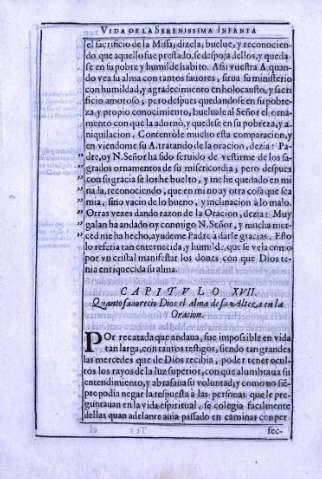 VIDA DE LA SERENISSIMA INFANTA
el sacrificio de la Missa, dizela, buelue, y reconocien
do que aquello fue prestado, se despoja dellos, y queda-
se en su pobre y humilde habito. Assi vuestra A. quan-
do vea su alma con tantos fauores, sirua su ministerio
con humildad, y agradecimiento en holocausto, y sacri
ficio amoroso; pero despues quedandose en su pobre-
za, y propio conocimiento, bueluale al Señor el orna-
mento con que la adornò, y quedese en su pobreza, y a-
niquilacion. Contentòle mucho esta comparacion, y
en viendome su A. tratando de la oracion, dezia: Pa-
dre, oy N. Señor ha sido seruido de vestirme de los sa-
grados ornamentos de su misericordia; pero despues
con su gracia se los he buelto, y me he quedado en mi
nada, reconociendo, que en mi no ay otra cosa que sea
mia, sino vacio de lo bueno, y inclinacion à lo malo.
Otras vezes dando razon de la Oracion, dezia: Muy
galan ha andado oy conmigo N. Señor, y mucha mer-
ced me ha hecho, ayudeme Padre à darle gracias. Esto
lo referia tan enternecida, y humilde, que se veia como
por vn cristal manifestar los dones con que Dios te-
nia enriquecida su alma.
CAPITVLO XVII.
Quanto fauorecio Dios el alma de su Alteza en la
Oracion.
POr recatada que andaua, fue impossible en vida
tan larga, con tantos testigos, siendo tan grandes
las mercedes que de Dios recibia, poder tener ocul-
tos los rayos de la luz superior, con que alumbraua su
entendimiento, y abrasaua su voluntad; y como no siē-
pre podia negar la respuesta à las personas que le pre-
guntauan en la vida espiritual, se colegia facilmente
dellas quan adelante auia passado en caminos con per
fec-